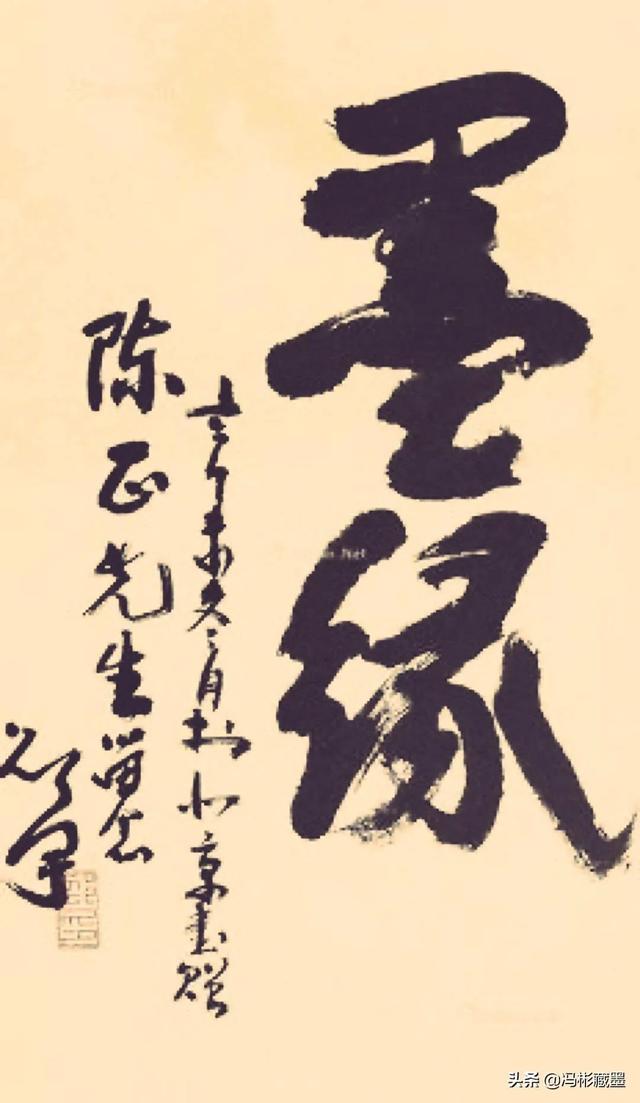 墨缘
辛未冬月於北京书赠
陈正先生留念
头条 @冯彬藏墨